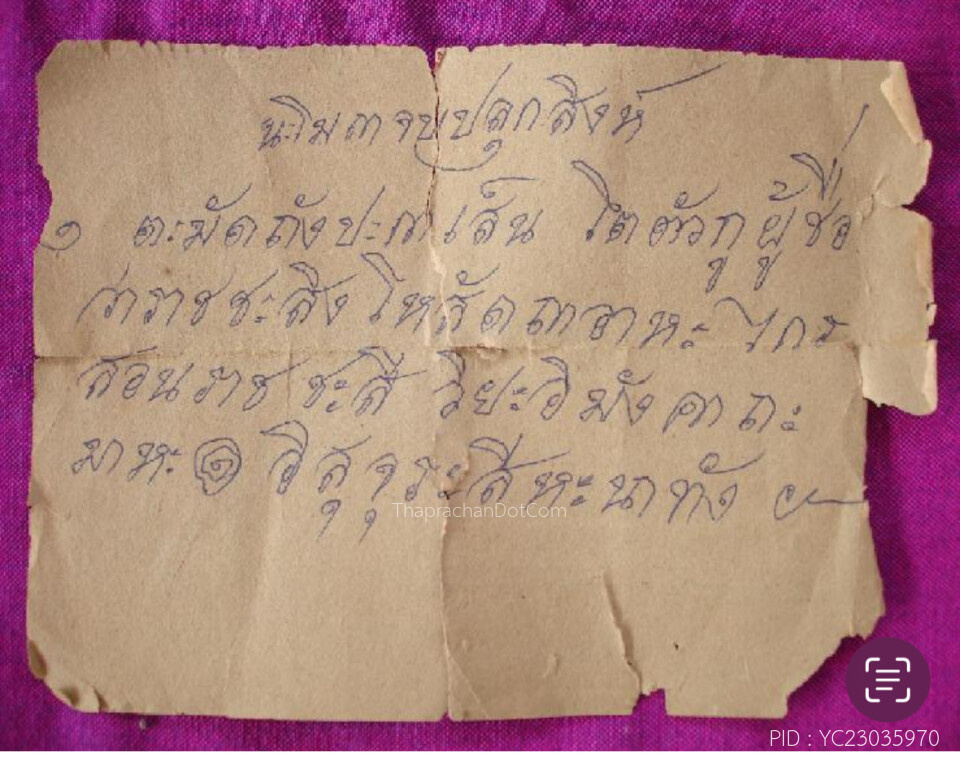 นะโมภาจบปลุกสิงห์
๑ ตะมัดถังปะกาเส้น โตตัวกูผู้ชื่อ
ว่าราชชะสิงโหสัดถาอาหะ ไกร
สอนราชชะสี วิยะอิมังคาถะ
มาหะ ๑ อิสุจุระสีหะนาทัง ฯ
ThaprachanDotCom
PID : YC23035970